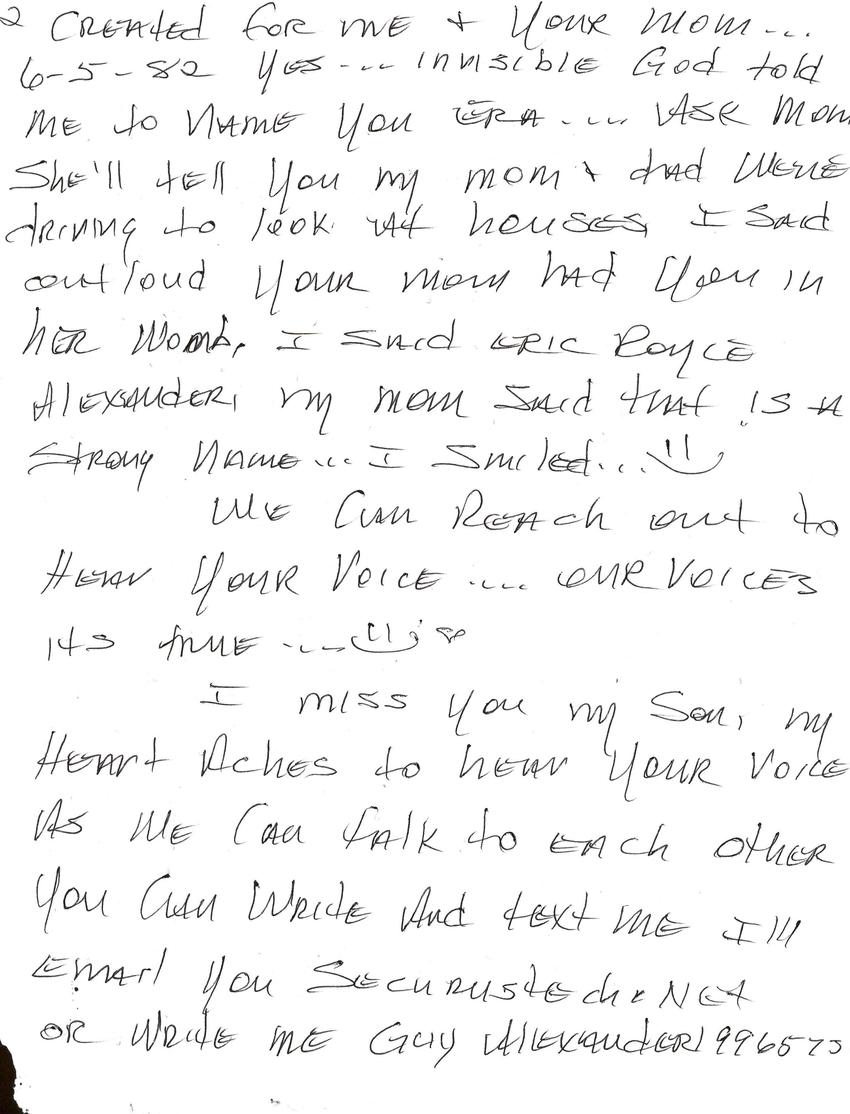 2 CREATED FOR ME + YOUR MOM...
6-5-82 YES... INVISIBLE GOD told
ME to NAME YOU ERA.... ASK MOM
SHE'll tEll YOU MY MOM + dAd WERE
driving to look At houses, I SAid
out loud YOUR MOM hAd YOU in
hER WOMb, I SAid ERIC ROYCE
AlEXANDER, MY MOM SAid thAt IS A
StRONg NAME... I SmilEd... :)
WE CAN REACh out to
HEAR YOUR VOICE .... OUR VOICES
its tRUE ....
I MISS YOU MY SON, MY
HEARt AChES to hEAR YOUR VOICE
AS WE CAN tAlK to EACh OthER
YOU CAN WRitE ANd tEXt ME I'll
EMAil YOU SECURUStECh.NEt
OR WRitE ME GUY AlEXANdER